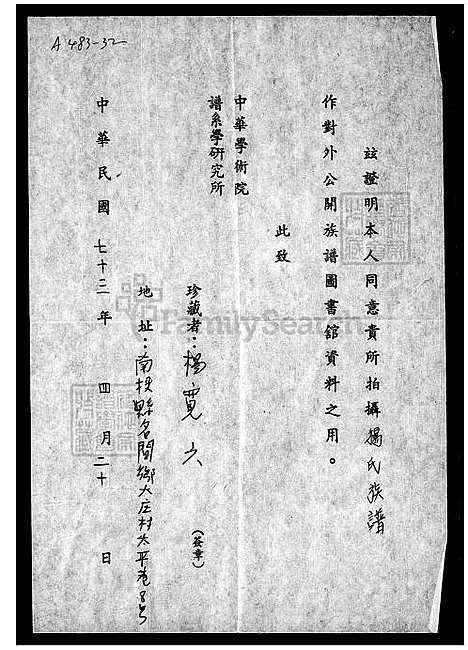 A 483-32
茲證明本人同意貴所拍攝楊氏族譜
作對外公開族譜圖書館資料之用。
此致
中華學術院
譜系學研究所
珍藏者：楊寬六（簽章）
地址：南投縣名間鄉大庄村太平巷8号
中華民國七十三年四月二十日
FamilySearch